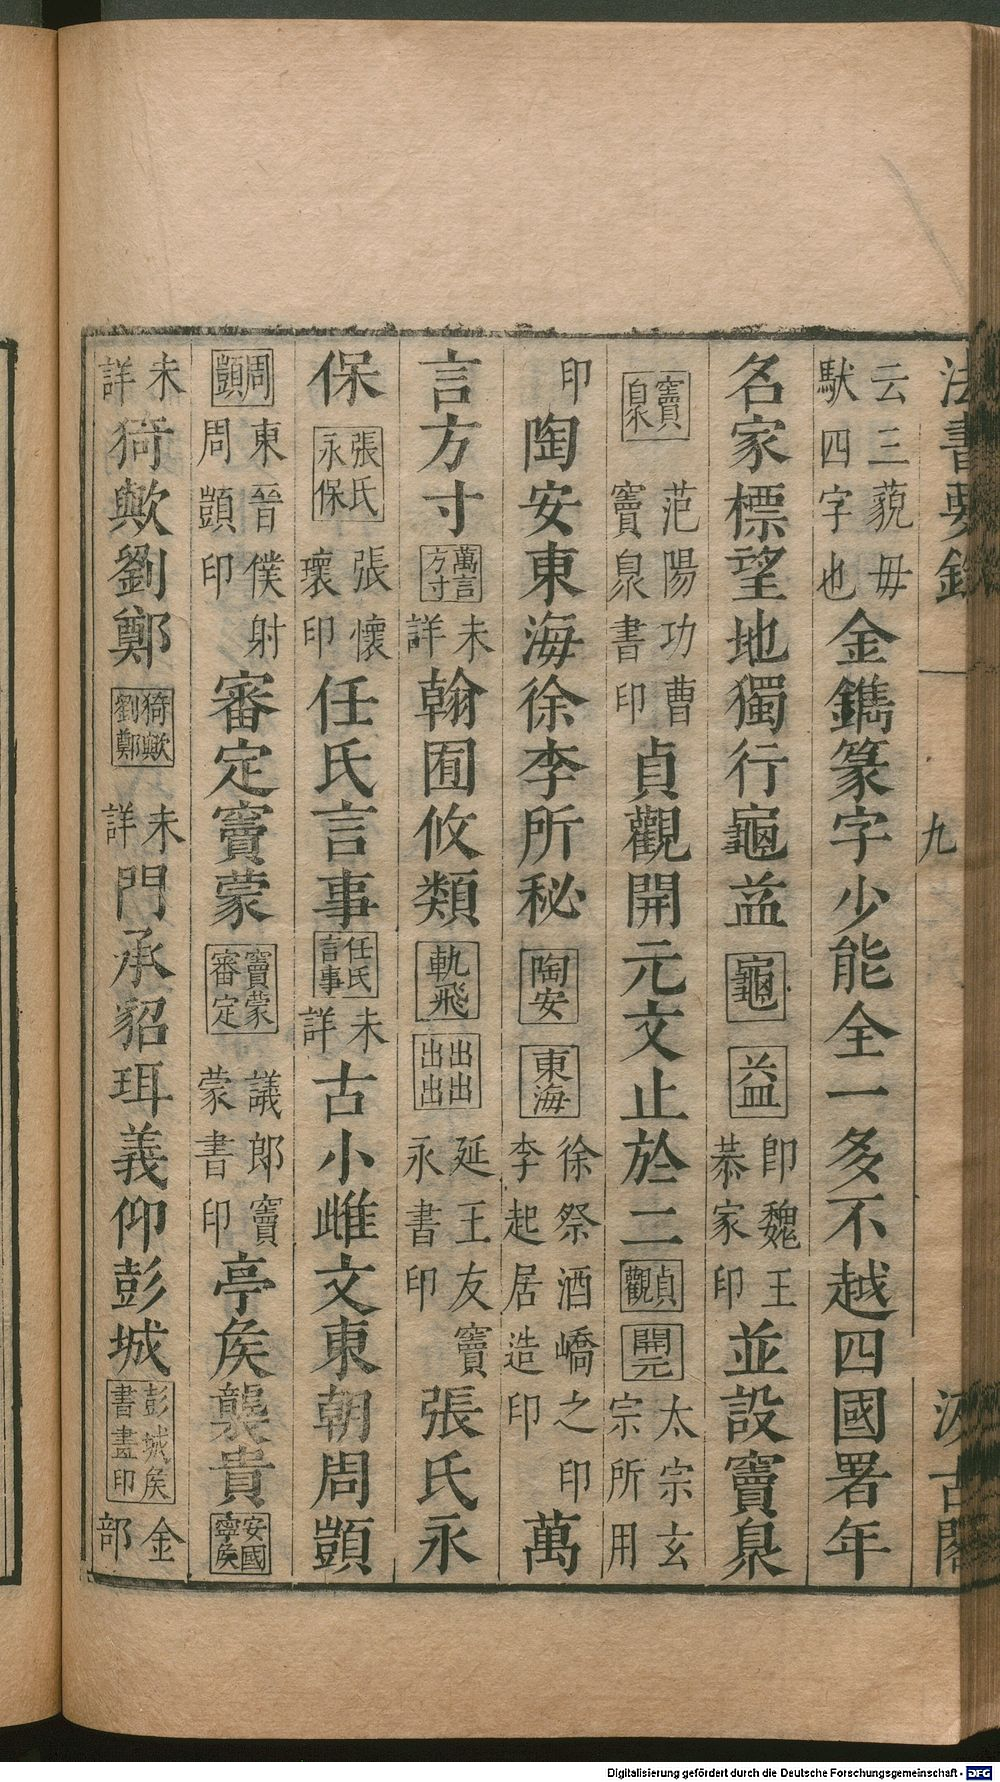 法書要錄
九
汲古閣
云三藐毋
馱四字也
金鐫篆字少能全一多不越四國署年
名家標望地獨行龜益
龜
益
卽魏王
恭家印
並設竇臮
竇
臮
范陽功曹
竇臮書印
貞觀開元文止於二
貞
觀
開
元
太宗玄
宗所用
印
陶安東海徐李所秘
陶安
東海
徐祭酒嶠之印
李起居造印
萬
言方寸
萬言
方寸
未
詳
翰囿攸類
軌飛
出出
出出
延王友竇
永書印
張氏永
保
張氏
永保
張懷
瓌印
任氏言事
任氏
言事
未
詳
古小雌文東朝周顗
周
顗
東晉僕射
周顗印
審定竇蒙
竇蒙
審定
議郎竇
蒙書印
亭矦襲貴
安國
寧矦
未
詳
猗歟劉鄭
猗歟
劉鄭
未
詳
門承貂珥義仰彭城
彭城矦
書畫印
金
部
Digitalisierung gefördert durch die Deutsche Forschungsgemeinschaft - DFG